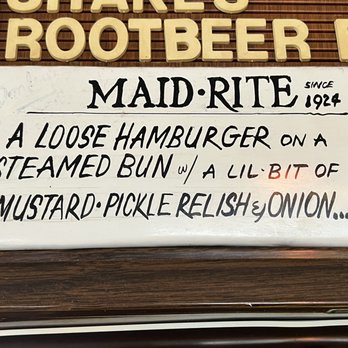 SHAKES
ROOTBEER
MAID·RITE SINCE 1924
A LOOSE HAMBURGER ON A
STEAMED BUN W/ A LIL·BIT OF
MUSTARD·PICKLE RELISH & ONION...